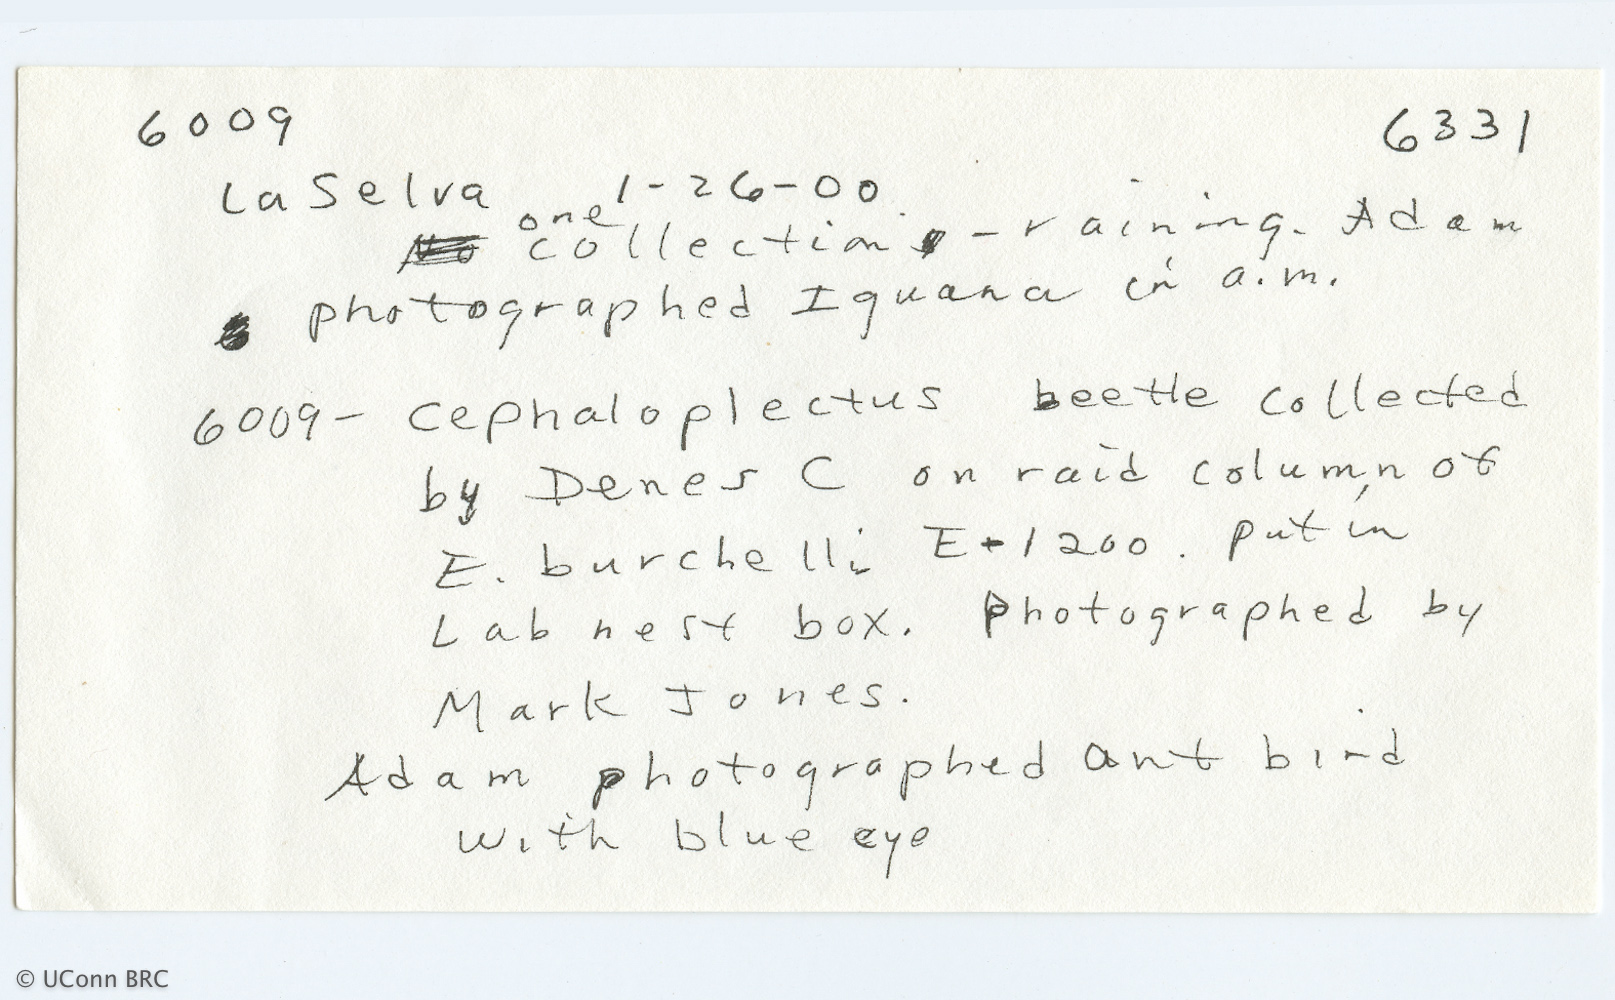 6009 6331
La Selva 1-26-00
one collection - raining. Adam
photographed Iguana in a.m.
6009- Cephaloplectus beetle collected
by Denes C on raid column of
E. burchelli E-1200. Put in
Lab nest box. Photographed by
Mark Jones.
Adam photographed ant bird
with blue eye
© UConn BRC